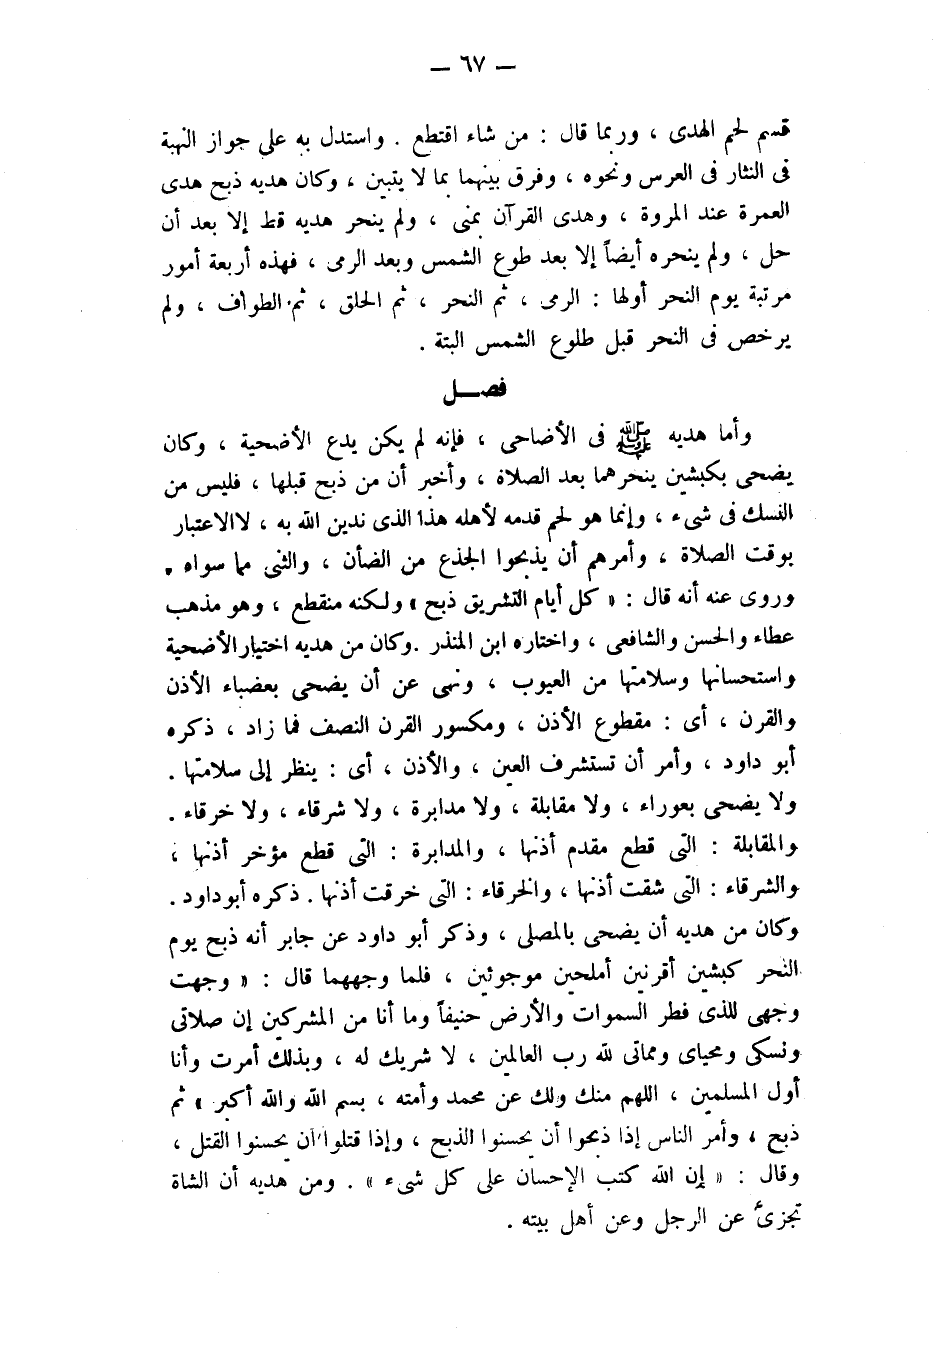 — ٦٧ —
قسم لحم الهدى ، وربما قال : من شاء اقتطع . واستدل به على جواز النهبة
فى النثار فى العرس ونحوه ، وفرق بينهما بما لا يتبين ، وكان هديه ذبح هدى
العمرة عند المروة ، وهدى القرآن بمنى ، ولم ينحر هديه قط إلا بعد أن
حل ، ولم ينحره أيضاً إلا بعد طوع الشمس وبعد الرمى ، فهذه أربعة أمور
مرتبة يوم النحر أولها : الرمى ، ثم النحر ، ثم الحلق ، ثم الطواف ، ولم
يرخص فى النحر قبل طلوع الشمس البتة .
فصــل
وأما هديه ﷺ فى الأضاحى ، فإنه لم يكن يدع الأضحية ، وكان
يضحى بكبشين ينحرهما بعد الصلاة ، وأخبر أن من ذبح قبلها ، فليس من
النسك فى شىء ، وإنما هو لحم قدمه لأهله هذا الذى ندين الله به ، لا الاعتبار
بوقت الصلاة ، وأمرهم أن يذبحوا الجذع من الضأن ، والثنى مما سواه .
وروى عنه أنه قال : « كل أيام التشريق ذبح » ولكنه منقطع ، وهو مذهب
عطاء والحسن والشافعى ، واختاره ابن المنذر . وكان من هديه اختيار الأضحية
واستحسانها وسلامتها من العيوب ، ونهى عن أن يضحى بعضباء الأذن
والقرن ، أى : مقطوع الأذن ، ومكسور القرن النصف فما زاد ، ذكره
أبو داود ، وأمر أن تستشرف العين ، والأذن ، أى : ينظر إلى سلامتها .
ولا يضحى بعوراء ، ولا مقابلة ، ولا مدابرة ، ولا شرقاء ، ولا خرقاء .
والمقابلة : التى قطع مقدم أذنها ، والمدابرة : التى قطع مؤخر أذنها ،
والشرقاء : التى شقت أذنها ، والخرقاء : التى خرقت أذنها . ذكره أبو داود .
وكان من هديه أن يضحى بالمصلى ، وذكر أبو داود عن جابر أنه ذبح يوم
النحر كبشين أقرنين أملحين موجوئين ، فلما وجههما قال : « وجهت
وجهى للذى فطر السموات والأرض حنيفاً وما أنا من المشركين إن صلاتى
ونسكى ومحياى ومماتى لله رب العالمين ، لا شريك له ، وبذلك أمرت وأنا
أول المسلمين ، اللهم منك ولك عن محمد وأمته ، بسم الله والله أكبر » ثم
ذبح ، وأمر الناس إذا ذبحوا أن يحسنوا الذبح ، وإذا قتلوا أن يحسنوا القتل ،
وقال : « إن الله كتب الإحسان على كل شىء » . ومن هديه أن الشاة
تجزئ عن الرجل وعن أهل بيته .